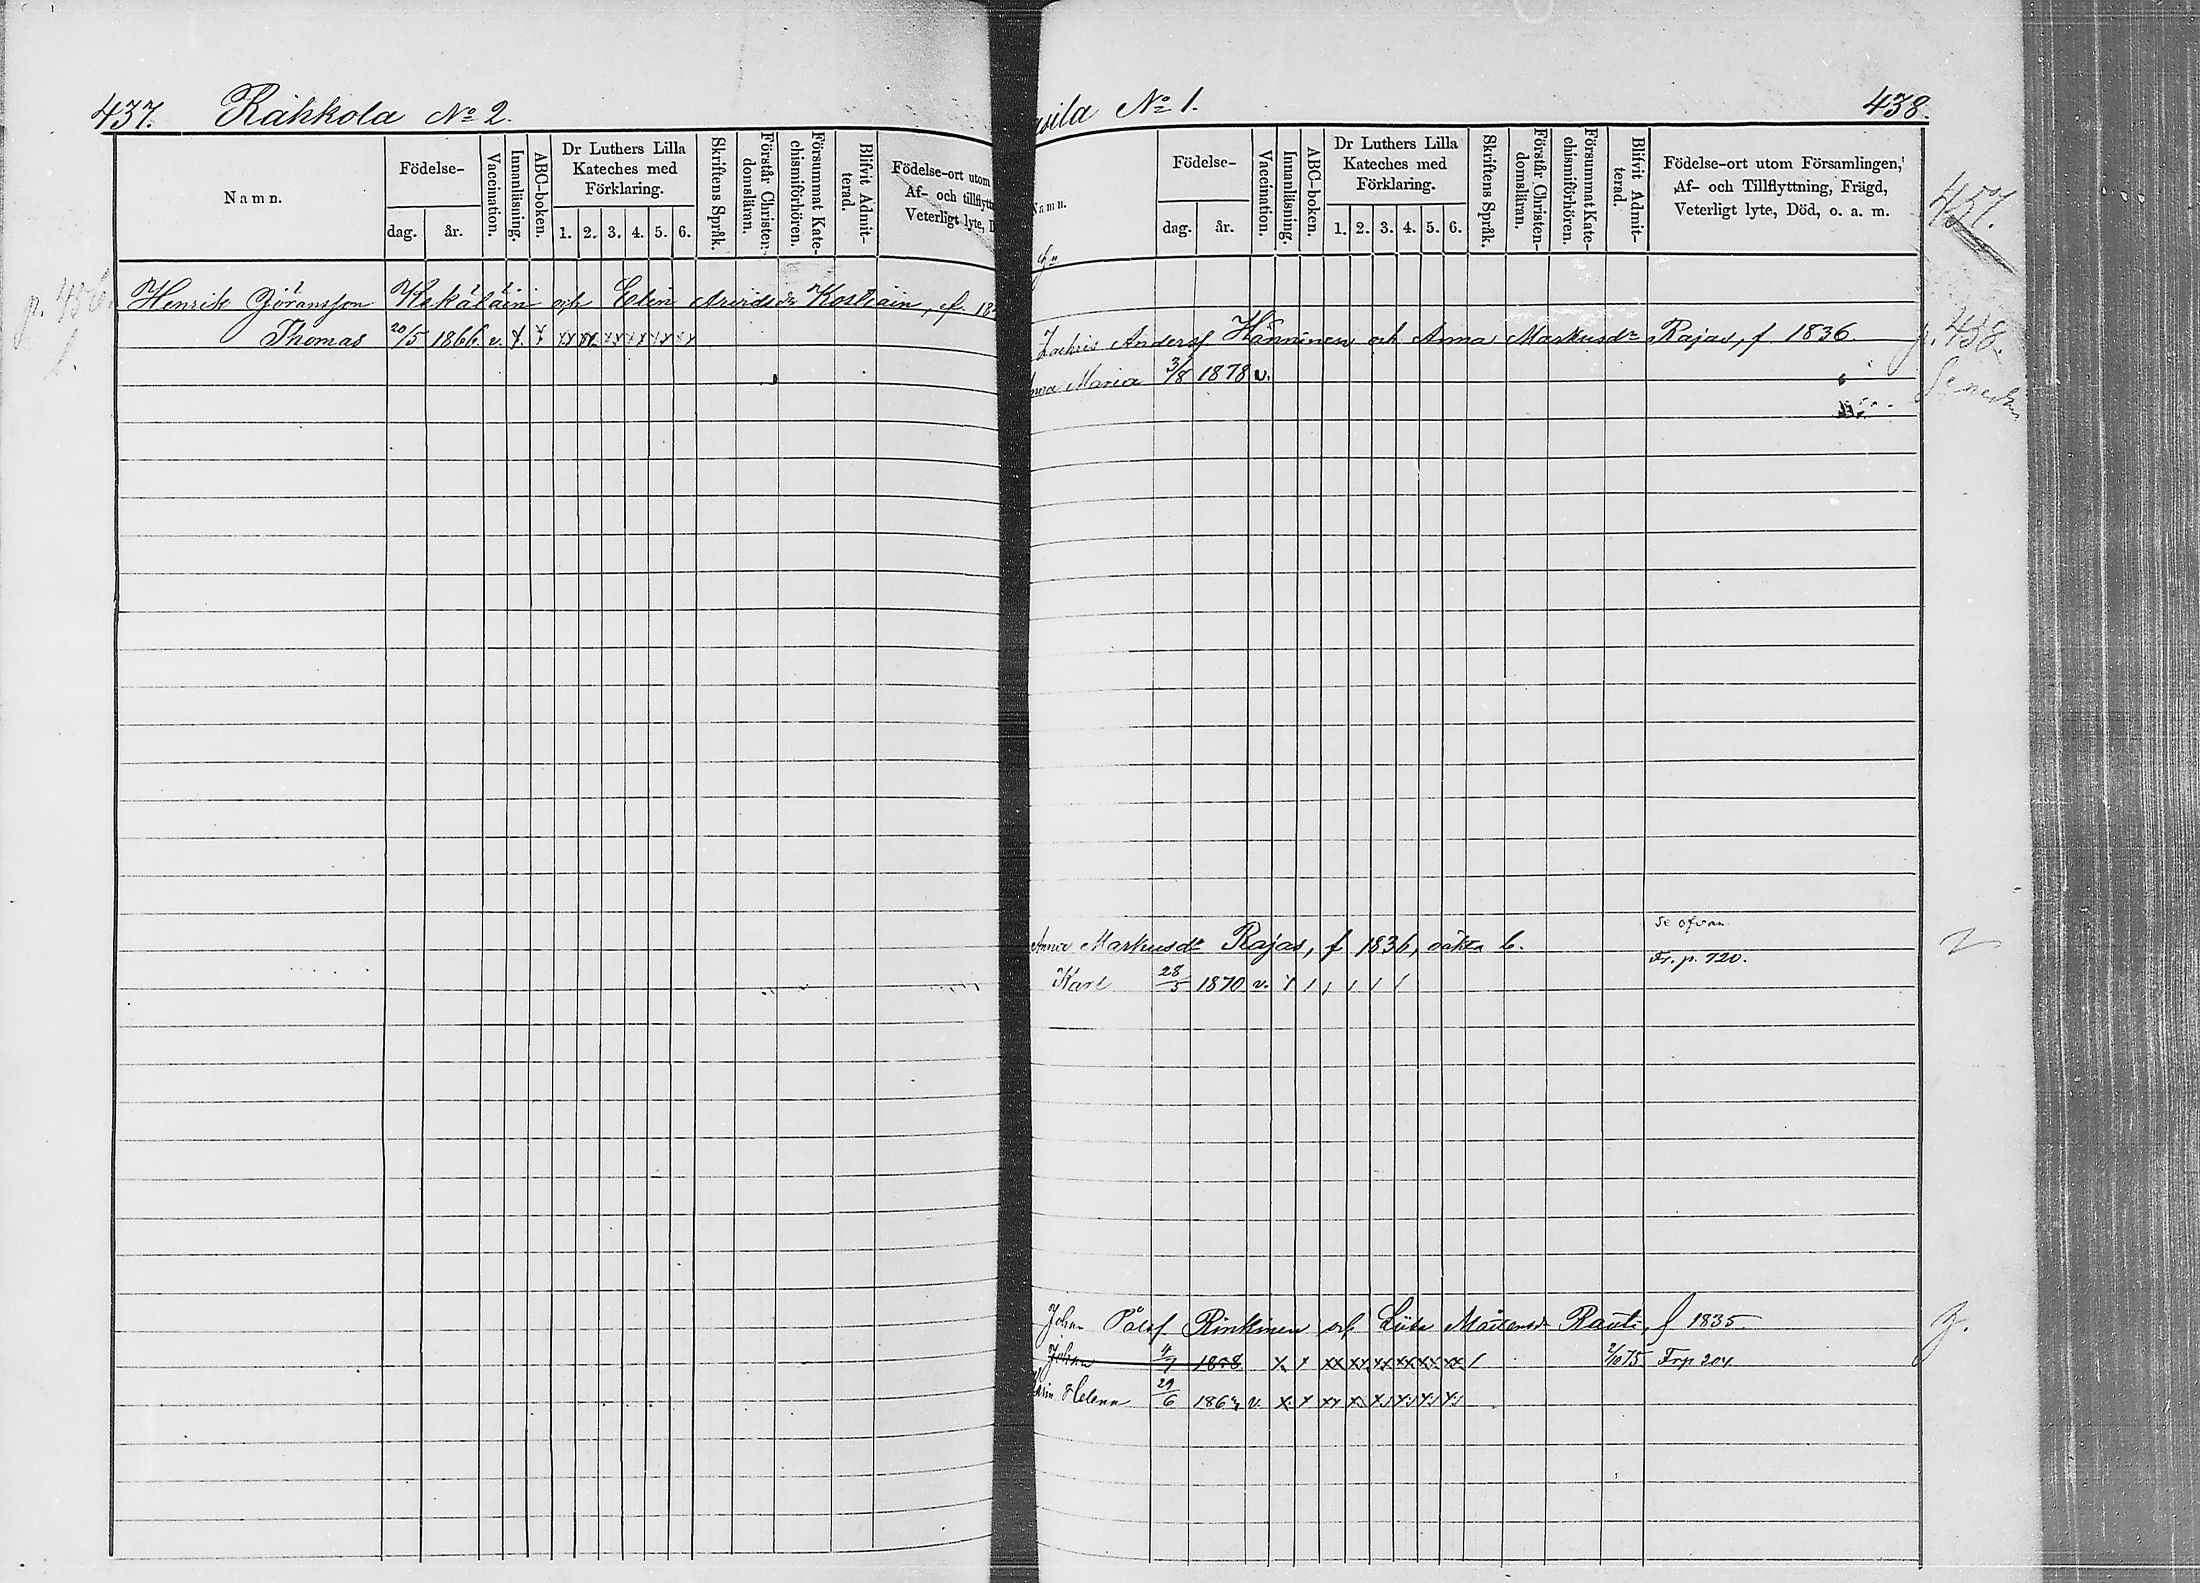 437. Räkkola No 2.
Namn.
Födelse-
dag.
år.
Vaccination.
Innanläsning.
ABC-boken.
Dr Luthers Lilla
Kateches med
Förklaring.
1. 2. 3. 4. 5. 6.
Skriftens Språk.
Förstår Christen-
domsläran.
Försummat Kate-
chismiförhören.
Blifvit Admit-
terad.
Födelse-ort utom
Af- och tillflyttn
Veterligt lyte, D
Henrik Göransson Kekäläin och Elin Arvidsdr Kostiain, f. 18
Thomas 20/5 1866. v. x. x xx xx xx xx xx xx
vila No 1. 438.
Namn.
Födelse-
dag.
år.
Vaccination.
Innanläsning.
ABC-boken.
Dr Luthers Lilla
Kateches med
Förklaring.
1. 2. 3. 4. 5. 6.
Skriftens Språk.
Förstår Christen-
domsläran.
Försummat Kate-
chismiförhören.
Blifvit Admit-
terad.
Födelse-ort utom Församlingen,
Af- och Tillflyttning, Frägd,
Veterligt lyte, Död, o. a. m.
457.
Zachris Anders. Hänninen och Anna Markusdr Rajas, f 1836. p. 438.
Maria 3/8 1878 v.
Se ofvan
Anna Markusdr Rajas, f 1836, oäkta b.
Fr. p. 720.
Karl 28/5 1870 v.
Johan Pålsf Rinkinen och Liisa Mårtensdr Rauti, f 1835
Johan 4/7 1858 x x xx xx xx xx xx xx / 2/10 75 Frp 204
Helena 29/6 186 v. x x